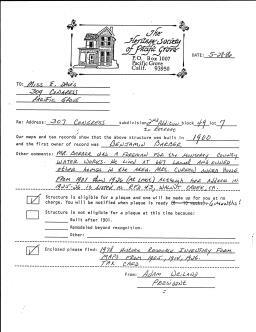 The
Heritage Society
of Pacific Grove
P.O. Box 1007
Pacific Grove
Calif. 93950
DATE: 5-28-86
TO: MISS E. DAVIS
309 CONGRESS
PACIFIC GROVE
Re: Address: 307 CONGRESS subdivision 2nd Addition block 49 lot 7
Our maps and tax records show that the above structure was built in 1900
and the first owner of record was BENJAMIN BARBER
Other comments: MR. BARBER WAS A FOREMAN FOR THE MONTEREY COUNTY
WATER WORKS. HE LIVED AT 657 LAUREL AND OWNED
OTHER HOMES IN THE AREA.
FROM
1925-26 IS LISTED AS RFD #3, WALNUT CREEK, CA.
Structure is eligible for a plaque and one will be made for you at no
charge. You will be notified when plaque is ready 6 months!
Structure is not eligible for a plaque at this time because:
Built after 1901.
Remodeled beyond recognition.
Other:
Enclosed please find: 1978 HISTORIC RESOURCE INVENTORY FORM
MAPS FROM 1905, 1914, 1926.
TAX CARD
From: ADAM WEILAND
PRESIDENT